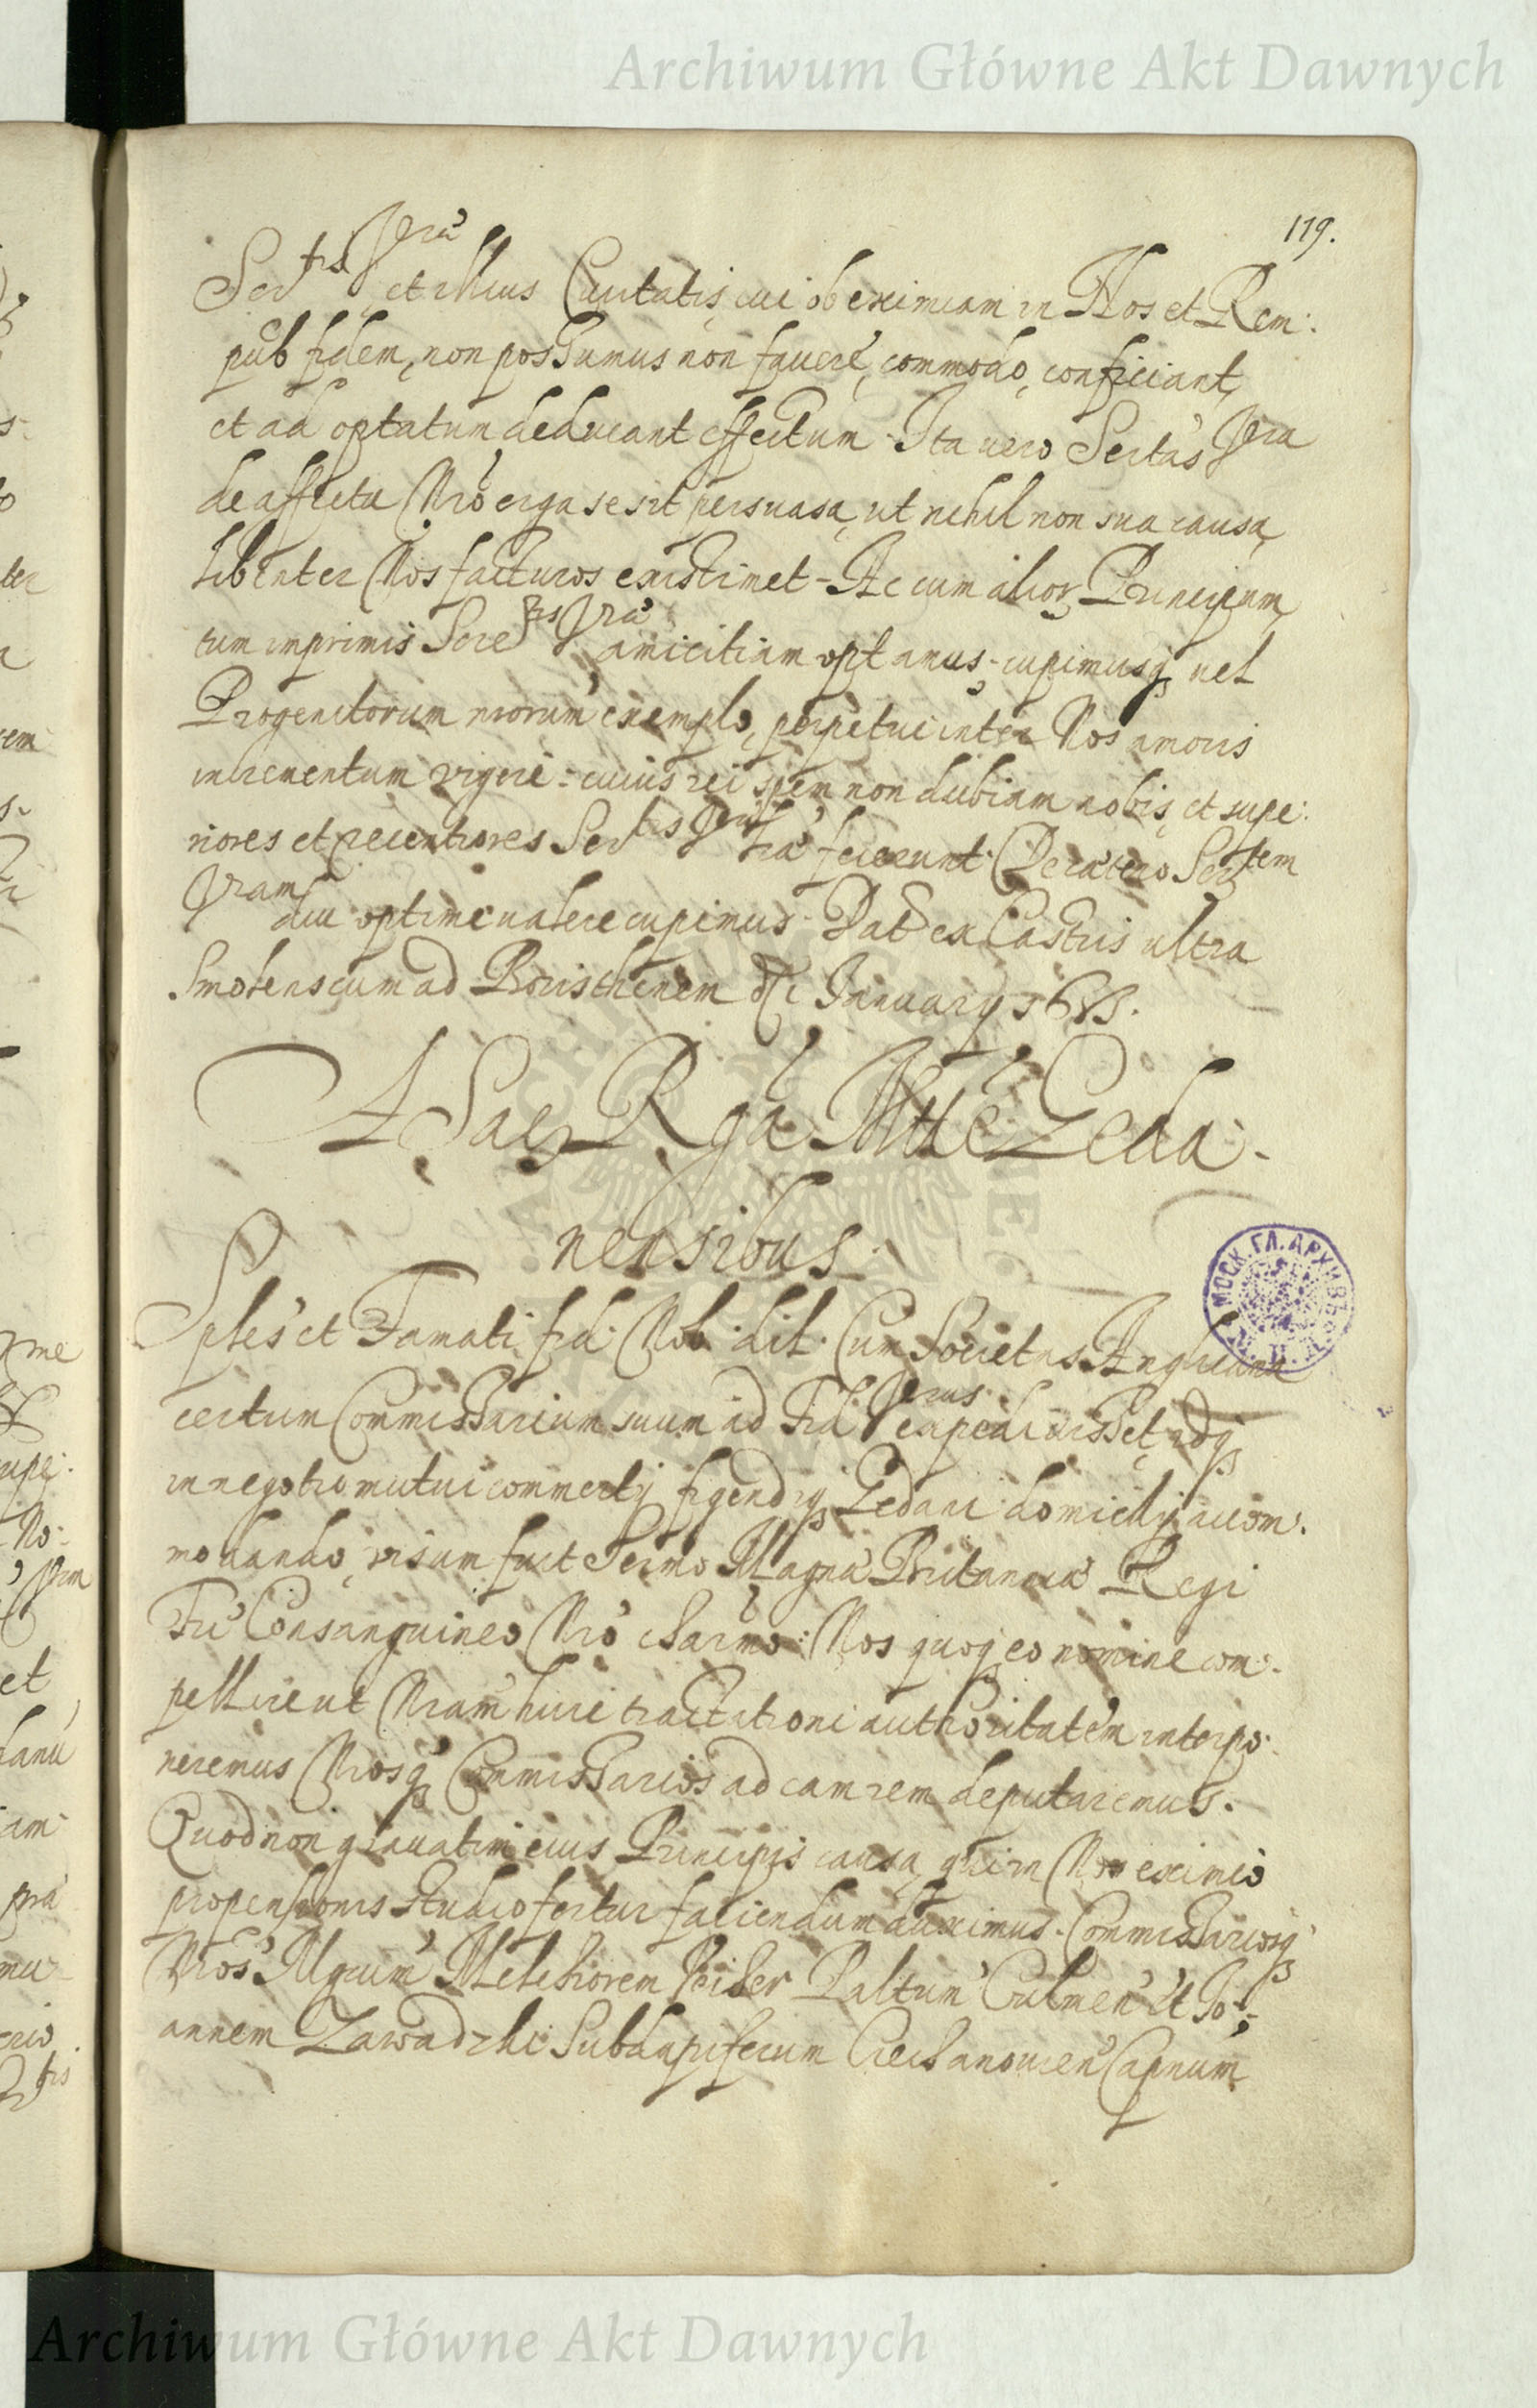 Archiwum Główne Akt Dawnych
119.
Ser^tis Vrae et illius Civitatis, cui ob eximiam in Nos et Rem:
pub fidem, non possumus non favere, commodo, conficiant,
et ad optatum deducant effectum. Ita vero Sertas Vra
de affectu Nro erga se sit persuasa, ut nihil non sua causa,
libenter Nos facturos existimet. Ac cum alior Principum,
tum imprimis Sere^tis Vrae amicitiam optamus, cupimusq vel
Progenitorum nrorum exemplo, perpetui inter Nos amoris
incrementum vigere: cuius rei spem non dubiam nobis, et supe:
riores et recentiores Ser^tis Vrae trae fecerunt. De caetero Ser^tem
Vram diu optime valere cupimus. Dat ex Castris ultra
Smolenscum ad Boristhenem January
A Sac Rga Mtte Geda-
nensibus.
Sptles et Famati fid. Nob. dil. Cum Societas Anglicana
certum Commissarium suum ad Fid. Vras expedivisset, adq
in negotio mutui commertij figendiq Gedani domicilij accom:
modando, visum fuit Sermo Magnae Britanniae Regi
Fri Consanguineo Nro charmo: Nos quoq eo nomine com:
pellere ut Nram huic tractationi authoritatem interpo:
neremus Nrosq Commissarios ad eam rem deputaremus.
Quod non gravatim eius Principis causa, qui in Nos eximio
propensionis studio fertur faciendum duximus. Commissariosq
Nros Mgcum Melchiorem Veiher Paltum Culmen et Jo:
annem Zawadzki Subdapiferum Ciechanovien Capnum
МОСК. ГЛ. АРХИВЪ
Archiwum Główne Akt Dawnych